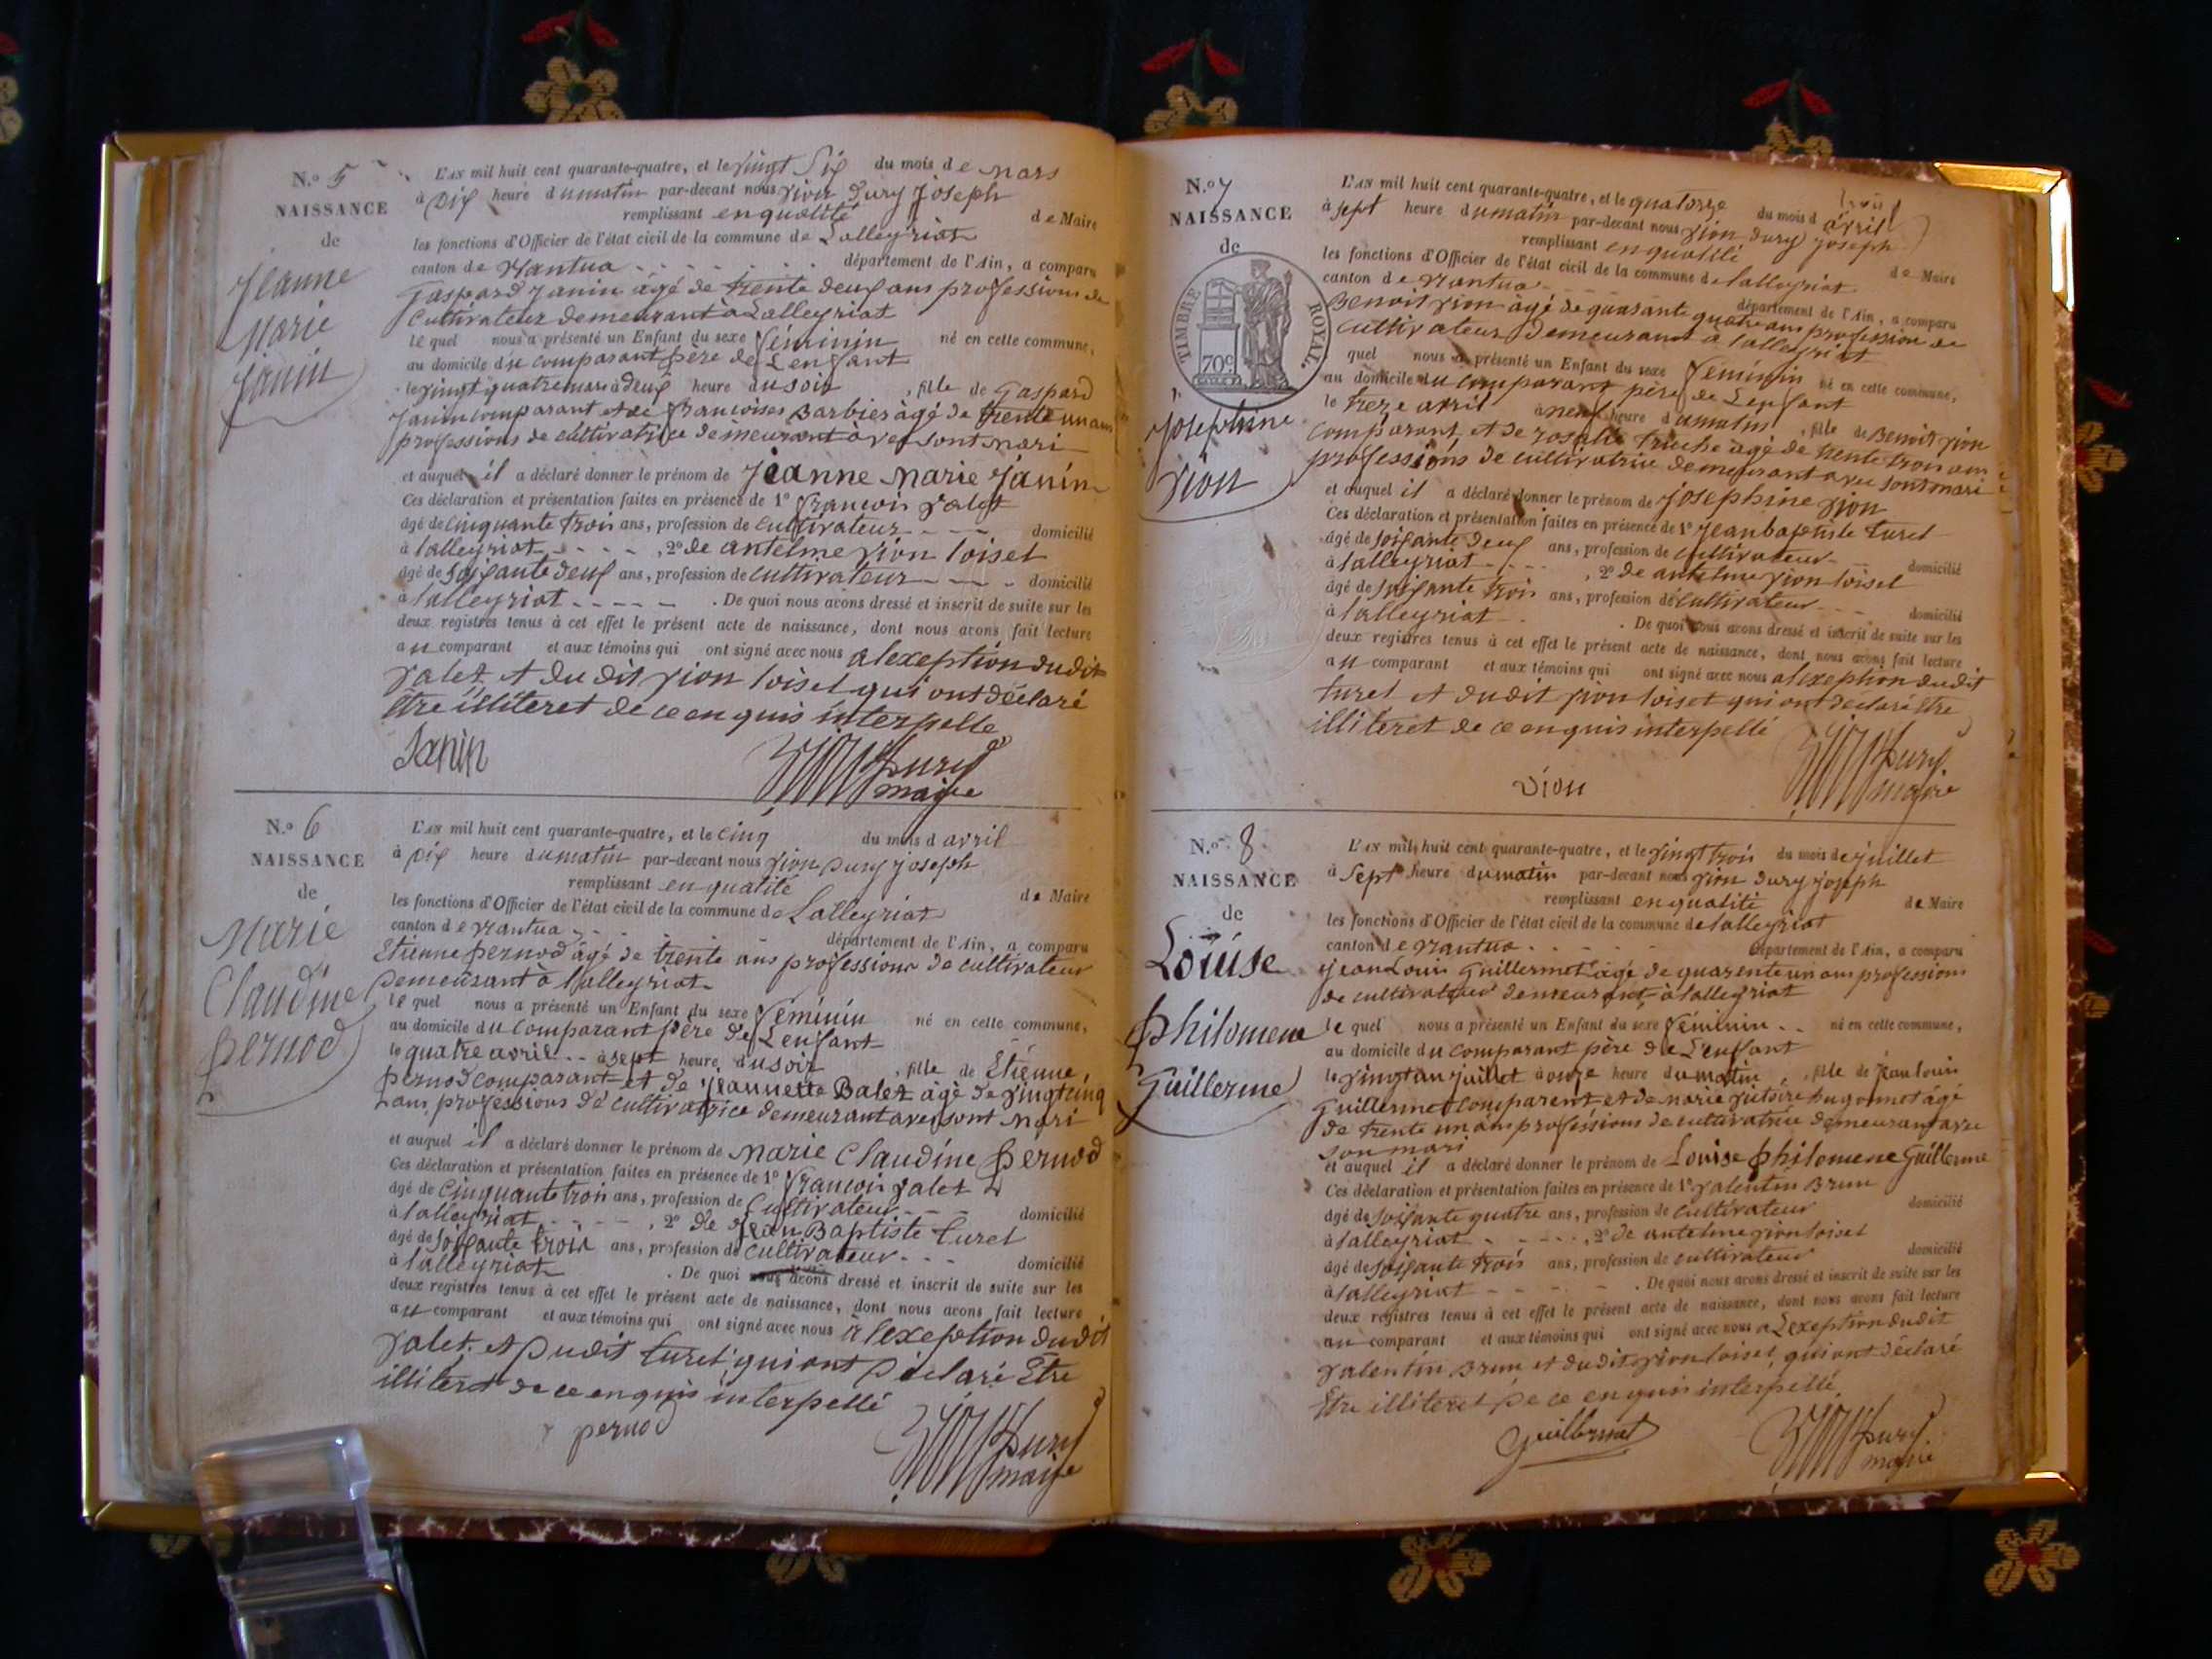 N.o 5
NAISSANCE
de
Jeanne
Marie
Janin
L'AN mil huit cent quarante-quatre, et le vingt Six du mois de Mars
à Dix heure du matin par-devant nous Vion Dury Joseph
remplissant en qualité de Maire
les fonctions d'Officier de l'état civil de la commune de Lalleyriat
canton de Nantua département de l'Ain, a comparu
Gaspard Janin âgé de trente deux ans professions de
Cultivateur demeurant à Lalleyriat
le quel nous a présenté un Enfant du sexe féminin né en cette commune,
au domicile du comparant père de L'enfant
le vingt quatre mars à deux heure du soir, fille de Gaspard
Janin comparant et de francoises Barbier àgé de trente un ans
professions de cultivatrice demeurant àvec sont mari
et auquel il a déclaré donner le prénom de Jeanne Marie Janin
Ces déclaration et présentation faites en présence de 1º francois Valet
âgé de cinquante trois ans, profession de cultivateur domicilié
à lalleyriat, 2º de antelme Vion loiset
âgé de Soixante deux ans, profession de cultivateur domicilié
à lalleyriat. De quoi nous avons dressé et inscrit de suite sur les
deux registres tenus à cet effet le présent acte de naissance, dont nous avons fait lecture
au comparant et aux témoins qui ont signé avec nous a lexeption du dit
Valet et du dit Vion loiset qui ont déclaré
être illiteret de ce enquis interpelle
Janin
Vion Dury
maire
N.o 6
NAISSANCE
de
Marie
Claudine
Pernod
L'AN mil huit cent quarante-quatre, et le cinq du mois d avril
à Dix heure du matin par-devant nous Vion Dury joseph
remplissant en qualité de Maire
les fonctions d'Officier de l'état civil de la commune de Lalleyriat
canton de Nantua département de l'Ain, a comparu
Etienne Pernod àgé de trente ans professions de cultivateur
Demeurant à lalleyriat
le quel nous a présenté un Enfant du sexe féminin né en cette commune,
au domicile du comparant père de L'enfant
le quatre avril à sept heure du soir, fille de Etienne,
Pernod comparant et de jeannette Balet àgé de vingt cinq
ans professions de cultivatrice demeurant avec sont Mari
et auquel il a déclaré donner le prénom de Marie Claudine Pernod
Ces déclaration et présentation faites en présence de 1º francois Valet
âgé de Cinquante trois ans, profession de Cultivateur domicilié
à lalleyriat, 2º de Jean Baptiste turel
âgé de Soixante trois ans, profession de cultivateur domicilié
à lalleyriat. De quoi nous avons dressé et inscrit de suite sur les
deux registres tenus à cet effet le présent acte de naissance, dont nous avons fait lecture
au comparant et aux témoins qui ont signé avec nous à lexeption du dit
Valet et Dudit turel qui ont Déclaré Etre
illiteret de ce enquis interpellé
pernod
Vion Dury
maire
N.o 7
NAISSANCE
de
TIMBRE ROYAL.
70c
Josephine
Vion
L'AN mil huit cent quarante-quatre, et le quatorze du mois d avril
à sept heure du matin par-devant nous Vion Dury joseph
remplissant en qualité de Maire
les fonctions d'Officier de l'état civil de la commune de lalleyriat
canton de Nantua département de l'Ain, a comparu
Benoit Vion àgé de quarante quatre ans profession de
cultivateur Demeurant a lalleyriat
quel nous a présenté un Enfant du sexe féminin né en cette commune,
au domicile du comparant père de L'enfant
le treze avril à neuf heure du matin, fille de Benoit Vion
comparant et de rosalie truche àgé de trente trois ans
professions de cultivatrice demeurant avec sont mari
et auquel il a déclaré donner le prénom de josephine Vion
Ces déclaration et présentation faites en présence de 1º Jean baptiste turel
âgé de soixante deux ans, profession de cultivateur domicilié
à lalleyriat, 2º de antelme Vion loiset
âgé de soixante trois ans, profession de cultivateur domicilié
à lalleyriat. De quoi nous avons dressé et inscrit de suite sur les
deux registres tenus à cet effet le présent acte de naissance, dont nous avons fait lecture
au comparant et aux témoins qui ont signé avec nous a lexeption du dit
turel et du dit Vion loiset qui ont déclaré être
illiteret de ce enquis interpellé
Vion
Vion Dury
maire
N.o 8
NAISSANCE
de
Louise
Philomene
Guillerme
L'AN mil huit cent quarante-quatre, et le vingt trois du mois de juillet
à Sept heure du matin par-devant nous Vion Dury joseph
remplissant en qualité de Maire
les fonctions d'Officier de l'état civil de la commune de lalleyriat
canton de Nantua département de l'Ain, a comparu
jean Louis Guillermet àgé de quarente un ans professions
de cultivateur demeurant à lalleyriat
le quel nous a présenté un Enfant du sexe féminin né en cette commune,
au domicile du comparant père de L'enfant
le vingt un juillet à onze heure du matin, fille de jean louis
Guillermet comparent et de marie victoire hugonnet àgé
de trente un ans professions de cultivatrice demeurant avec
son mari
et auquel il a déclaré donner le prénom de Louise Philomene Guillerme
Ces déclaration et présentation faites en présence de 1º Valentin Brun
âgé de Soixante quatre ans, profession de cultivateur domicilié
à lalleyriat, 2º de antelme Vion loiset
âgé de Soixante trois ans, profession de cultivateur domicilié
à lalleyriat. De quoi nous avons dressé et inscrit de suite sur les
deux registres tenus à cet effet le présent acte de naissance, dont nous avons fait lecture
au comparant et aux témoins qui ont signé avec nous a Lexeption dudit
Valentin Brun et dudit Vion loiset qui ont déclaré
Etre illiteret de ce enquis interpellé
Guillermet
Vion Dury
maire